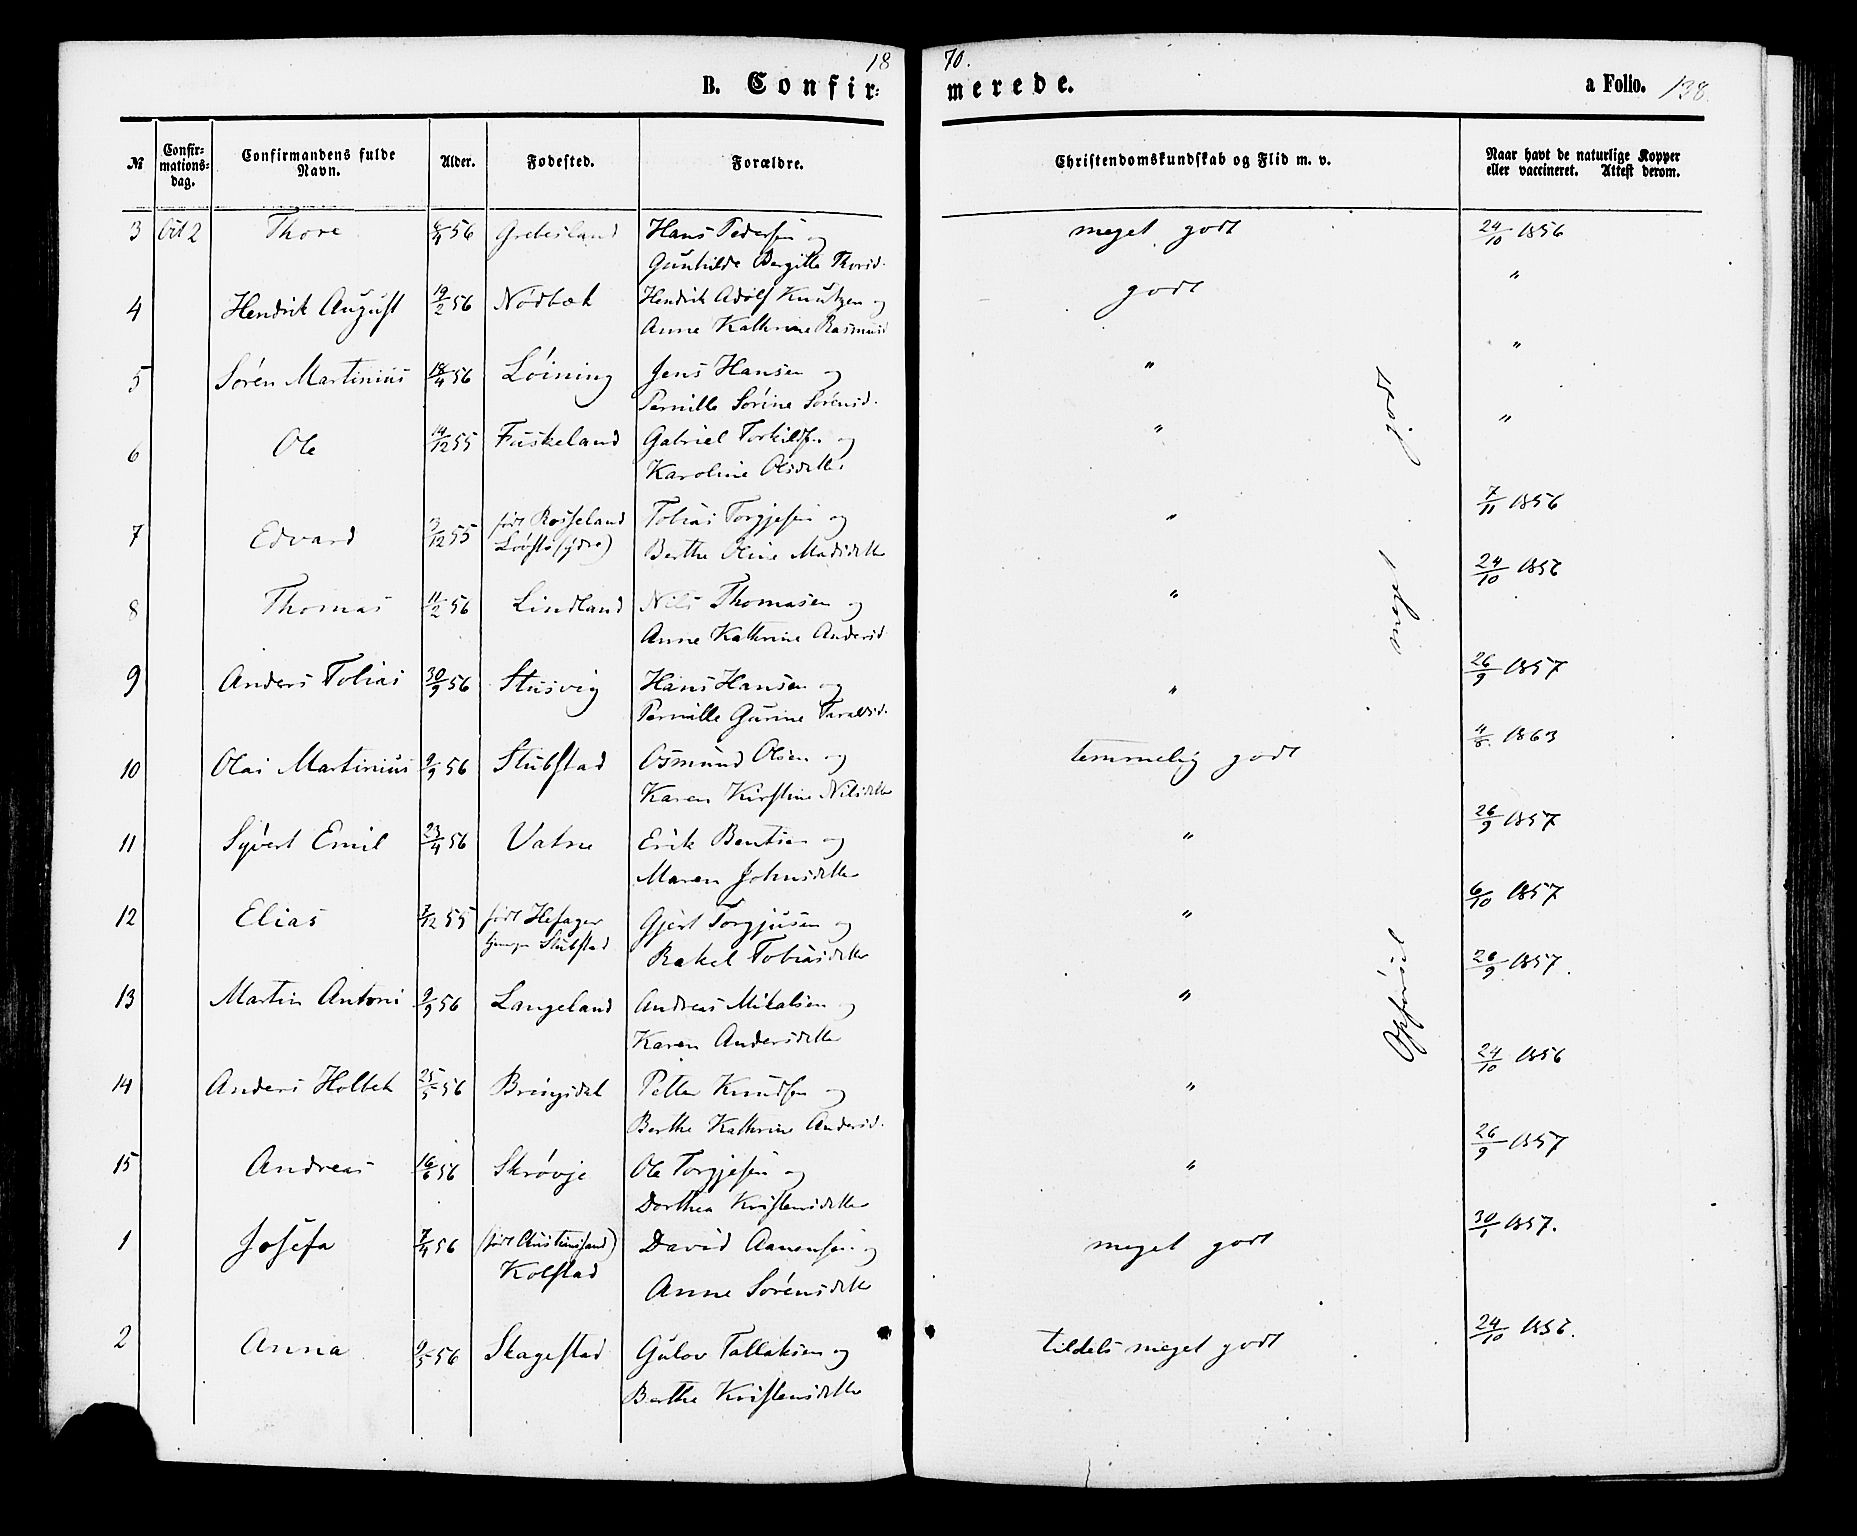 18 70.
B. Confir= merede. a Folio. 138.
№ Confir=mations=dag. Confirmandens fulde Navn. Alder. Fødested. Forældre. Christendomskundskab og Flid m. v. Naar havt de naturlige Kopper eller vaccineret. Attest derom.
3 Oct 2 Thore 56 Grebesland Hans Pedersen og meget godt 24/10 1856
Gunhilde Bergitte Thorsd.
4 Hendrik August 19/2 56 Nødbæk Hendrik Adolf Knutzen og godt "
Anne Kathrine Rasmusd
5 Søren Martinius 18/4 56 Løining Jens Hansen og " "
Pernille Sørine Sørensd.
6 Ole 14/12 55 Fuskeland Gabriel Torkildsen og " "
Karoline Olsdatter
7 Edvard 3/12 55 født Rosseland Tobias Torgjesen og " 7/11 1856
Løvsto (ydre) Berthe Oline Madsdatter
8 Thomas 11/2 56 Lindland Nils Thomasen og " 24/10 1856
Anne Kathrine Andersd
9 Anders Tobias 30/9 56 Stusvig Hans Hansen og " 26/9 1857
Pernille Gurine Taraldsd.
10 Olai Martinius 9/9 56 Stubstad Osmund Olsen og temmelig godt 4/8 1863
Karen Kirstine Nilsdatter
11 Syvert Emil 23/4 56 Vatne Erik Bentsen og " 26/9 1857
Maren Johnsdatter
12 Elias 7/12 55 født Hesager Gjert Torgjusen og " 6/10 1857
Stubstad Rakel Tobiasdatter
13 Martin Antoni 9/9 56 Langeland Andreas Mikalsen og " 26/9 1857.
Karen Andersdatter
14 Anders Holbek 25/5 56 Bringsdal Petter Knudsen og " 24/10 1856
Berthe Kathrine Andersd.
15 Andreas 16/6 56 Skrøvje Ole Torgjesen og " 26/9 1857
Dorthea Kristensdatter
1 Josefa 7/4 56 (født Christiansand) David Aanensen og meget godt 30/1 1857.
Kolstad Anne Sørensdatter
2 Anna 9/5 56 Skagestad Gulov Tallaksen og tildels meget godt 24/10 1856.
Berthe Kristensdatter
Opførsel meget godt